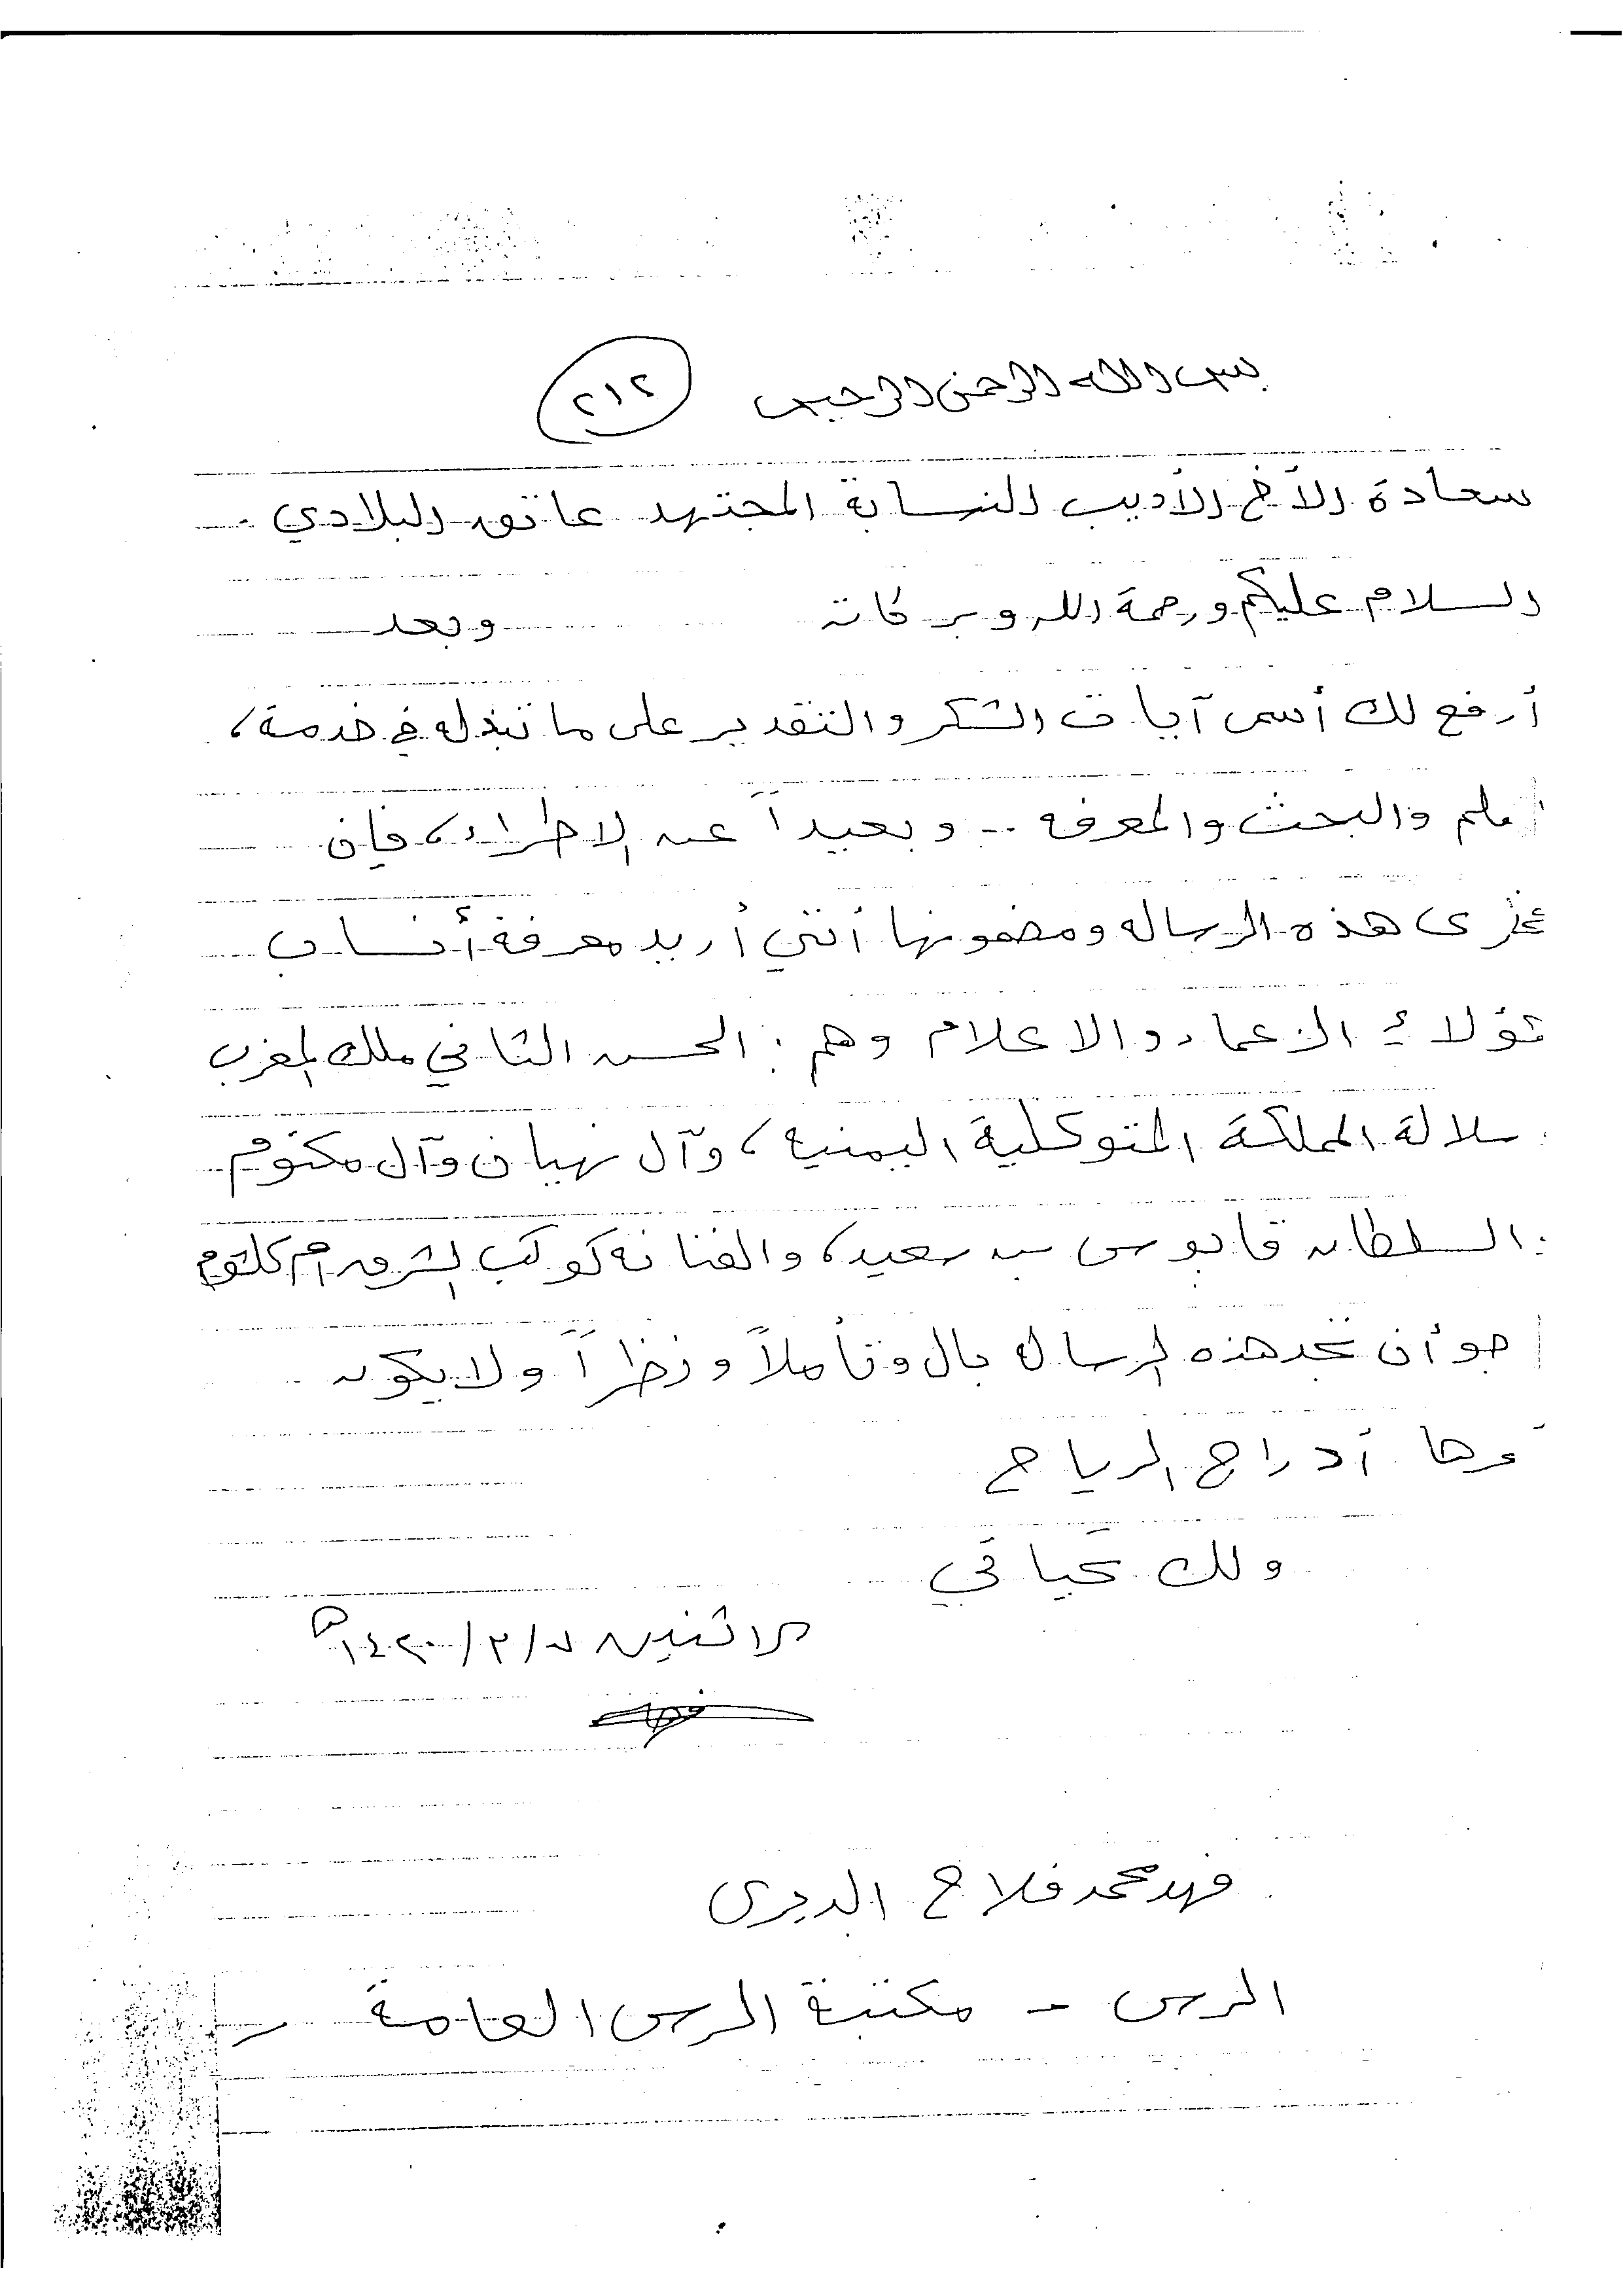 بسم الله الرحمن الرحيم ٢١٢
سعادة الأخ الأديب النسابة المجتهد عاتق البلادي
السلام عليكم ورحمة الله وبركاته وبعد
أرفع لك أسمى آيات الشكر والتقدير على ما تبذله في خدمة،
العلم والبحث والمعرفة .. وبعيداً عن الاطراء، فإن
مغزى هذه الرسالة ومضمونها أنني أريد معرفة أنساب
هؤلاء الزعماء والاعلام وهم: الحسن الثاني ملك المغرب
سلالة المملكة المتوكلية اليمنية، وآل نهيان وآل مكتوم
السلطان قابوس بن سعيد، والفنانة كوكب الشرق أم كلثوم
أرجو أن تجد هذه الرسالة بال وتأملاً ونظراً ولا يكون
أدراج الرياح
ولك تحياتي
الاثنين ٧/٣/١٤٢٠ه
فهد
فهد محمد فلاح الديري
الرس - مكتبة الرس العامة